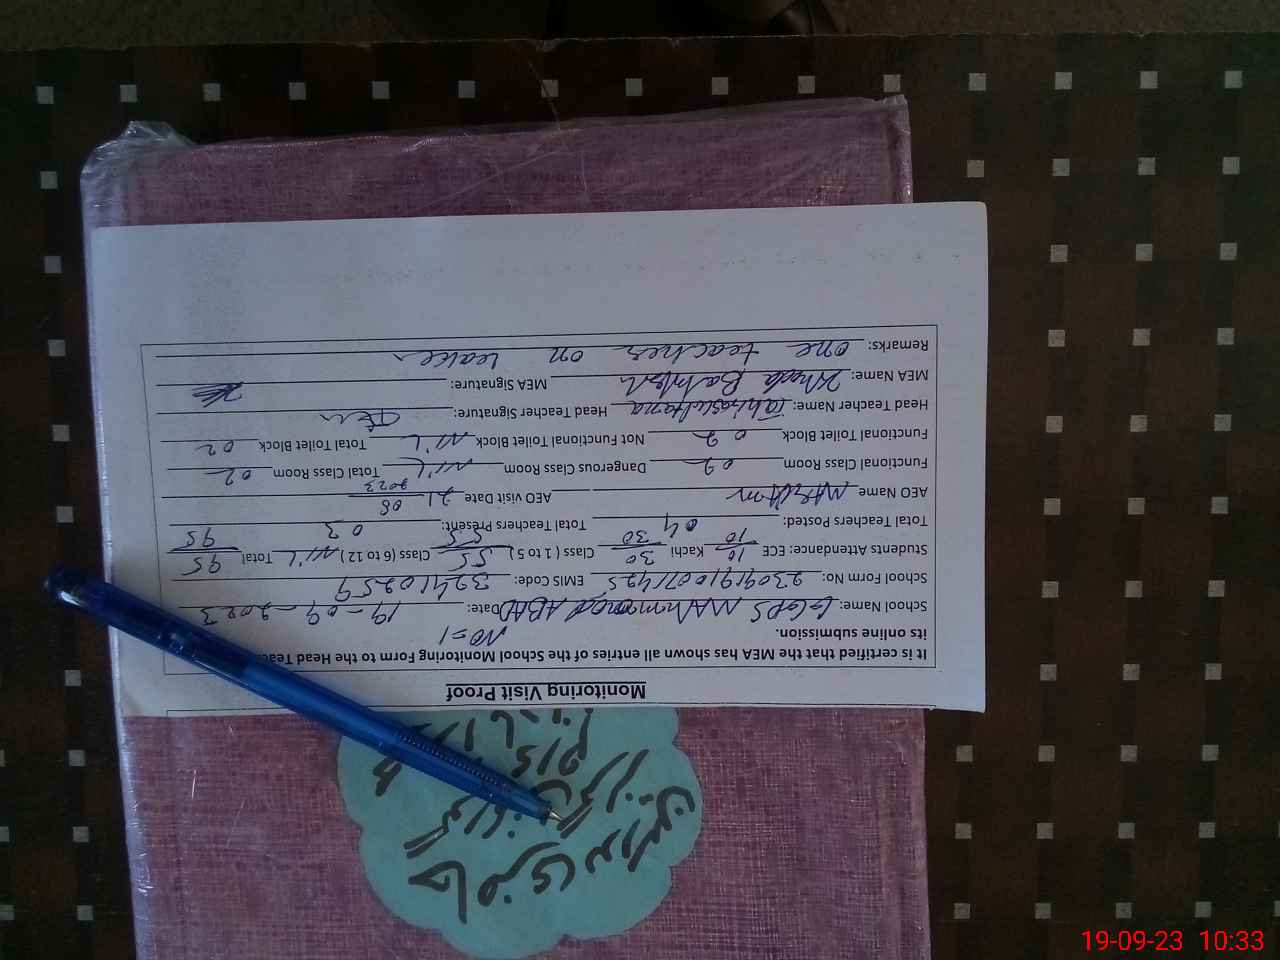 Monitoring Visit Proof
It is certified that the MEA has shown all entries of the School Monitoring Form to the Head Teac
its online submission. No=1
School Name: GGPS MAHmmood ABAD Date: 19-09-2023
School Form No: EMIS Code: 32410259
Students Attendance: ECE 10/10 Kachi 30/30 Class ( 1 to 5 ) 55/55 Class (6 to 12) NiL Total 95/95
Total Teachers Posted: 04 Total Teachers Present: 03
AEO Name AEO visit Date 21/08/2023
Functional Class Room 02 Dangerous Class Room NiL Total Class Room 02
Functional Toilet Block 02 Not Functional Toilet Block NiL Total Toilet Block 02
Head Teacher Name: Tahira sultana Head Teacher Signature:
MEA Name: Khuda Bakhsh MEA Signature:
Remarks: one teacher on leave
حاضری
19-09-23 10:33